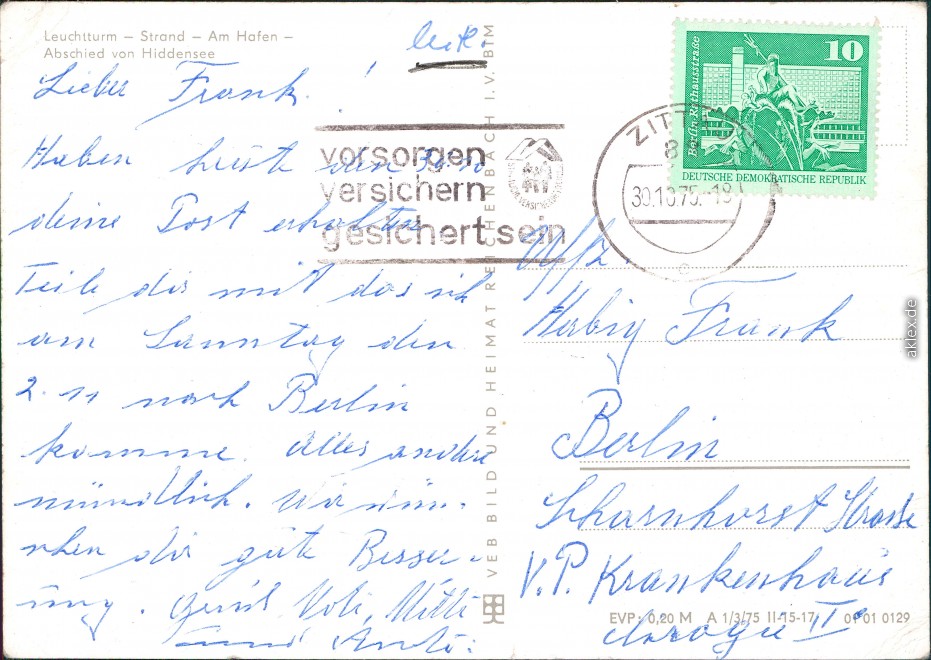 Leuchtturm – Strand – Am Hafen –
Abschied von Hiddensee
Lieber Frank!
Haben heute den 30.10
deine Post erhalten
Teile dir mit das ich
am Sonntag den
2.11 nach Berlin
komme. Alles andere
mündlich. Wir wün-
schen dir gute Besser-
ung. Gruß Vati, Mutti
und
vorsorgen
versichern
gesichert sein
VEB BILD UND HEIMAT REICHENBACH I.V. BTM
10
Berlin, Rathausstraße
DEUTSCHE DEMOKRATISCHE REPUBLIK
30.10.75.-18
c
Uffz.
Habig Frank
Berlin
Scharnhorst Strasse
V.P. Krankenhaus
EVP: 0,20 M A 1/3/75 II-15-17 01 01 0129
aklex.de